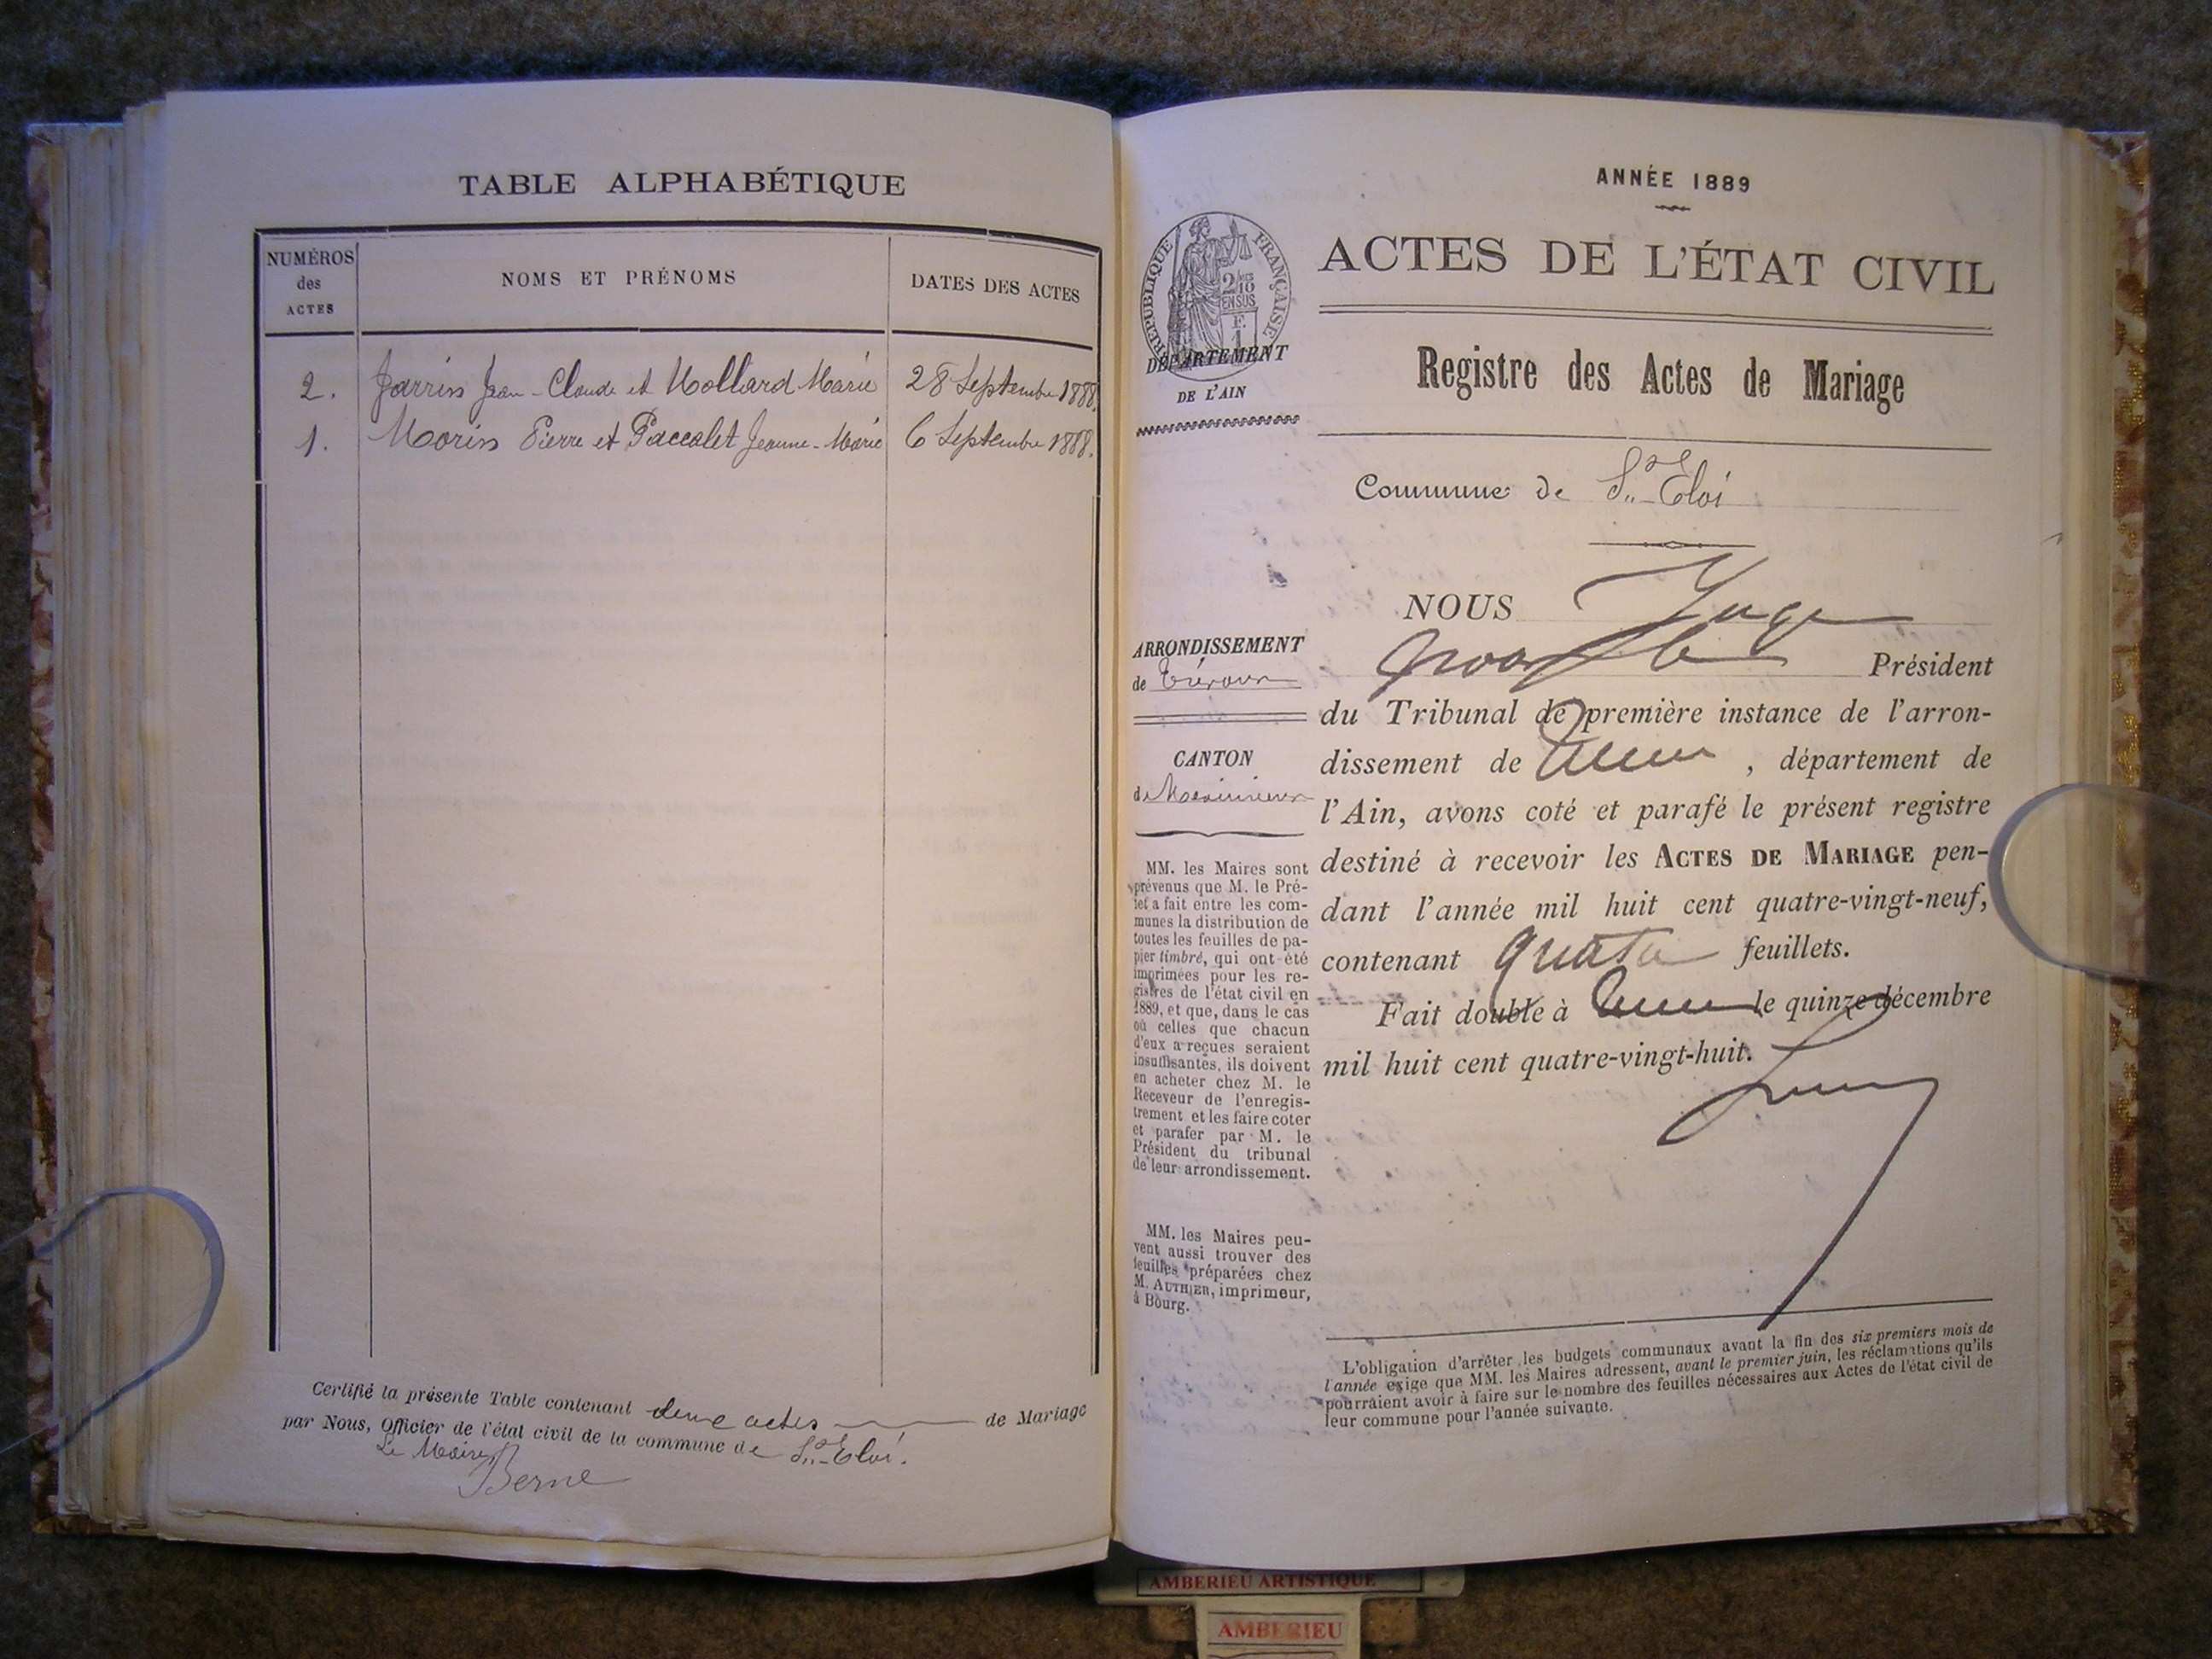 TABLE ALPHABÉTIQUE
NUMÉROS
des
ACTES
NOMS ET PRÉNOMS
DATES DES ACTES
2. Jarrin Jean-Claude et Mollard Marie 28 Septembre 1888.
1. Morin Pierre et Paccalet Jeanne-Marie 6 Septembre 1888.
Certifié la présente Table contenant deux actes de Mariage
par Nous, Officier de l'état civil de la commune de St-Eloi.
Le Maire
Berne
ANNÉE 1889
RÉPUBLIQUE FRANÇAISE
2 10
EN SUS
DÉPARTEMENT
DE L'AIN
ACTES DE L'ÉTAT CIVIL
Registre des Actes de Mariage
Commune de St-Eloi
ARRONDISSEMENT
de Trévoux
CANTON
de Meximieux
MM. les Maires sont
prévenus que M. le Pré-
fet a fait entre les com-
munes la distribution de
toutes les feuilles de pa-
pier timbré, qui ont été
imprimées pour les re-
gistres de l'état civil en
1889, et que, dans le cas
où celles que chacun
d'eux a reçues seraient
insuffisantes, ils doivent
en acheter chez M. le
Receveur de l'enregis-
trement et les faire coter
et parafer par M. le
Président du tribunal
de leur arrondissement.
MM. les Maires peu-
vent aussi trouver des
feuilles préparées chez
M. AUTHIER, imprimeur,
à Bourg.
NOUS Juge
Président
du Tribunal de première instance de l'arron-
dissement de , département de
l'Ain, avons coté et parafé le présent registre
destiné à recevoir les ACTES DE MARIAGE pen-
dant l'année mil huit cent quatre-vingt-neuf,
contenant quatre feuillets.
Fait double à le quinze décembre
mil huit cent quatre-vingt-huit.
L'obligation d'arrêter les budgets communaux avant la fin des six premiers mois de
l'année exige que MM. les Maires adressent, avant le premier juin, les réclamations qu'ils
pourraient avoir à faire sur le nombre des feuilles nécessaires aux Actes de l'état civil de
leur commune pour l'année suivante.
AMBERIEU ARTISTIQUE
AMBERIEU